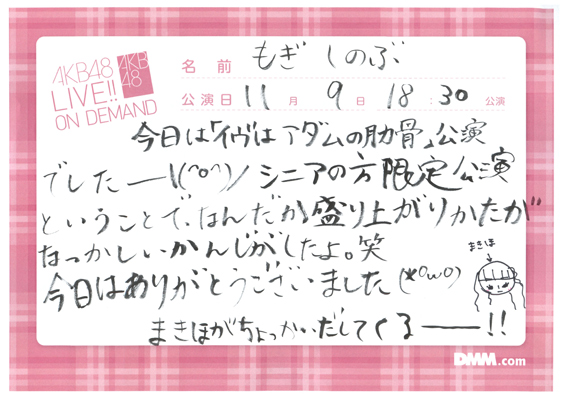 AKB48
LIVE!!
ON DEMAND
AKB
48
名前 もぎ しのぶ
公演日 11月 9日 18:30公演
今日は「イヴはアダムの肋骨」公演
でしたー\(^o^)/シニアの方限定公演
ということで、なんだか盛り上がりかたが
なつかしいかんじがしたよ。笑
今日はありがとうございました(*^ω^)
まきほ
まきほがちょっかいだしてくるー!!
DMM.com